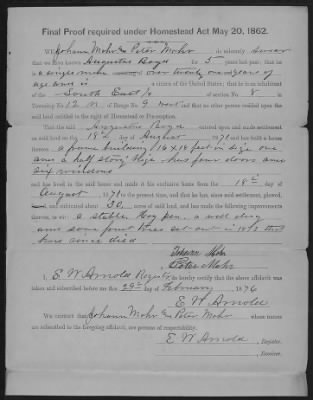 Final Proof required under Homestead Act May 20, 1862.
We Johann Mohr & Peter Mohr do solemnly swear
that we have known Augustus Boyd for 5 years last past; that he
is a single man over twenty one years of
age and is a citizen of the United States; that he is an inhabitant
of the South East ¼ of section No. 8 in
Township No. 12 N of Range No. 9 West and that no other person resided upon the said
land entitled to the right of Homestead or Pre-emption.
That the said Augustus Boyd entered upon and made settlement
on said land on the 18th day of August, 1871 and has built a house
a frame building 14 x 18 feet in size one
and a half story high has four doors and
six windows
and has lived in the said house and made it his exclusive home from the 18th day of
August 1871 to the present time, and that he has, since said settlement, plowed,
and cultivated about 20 acres of said land, and has made the following improvements
thereon, to wit: a stable hog pen, a well dug
and some fruit trees set out in 1873 that
have since died
Johann Mohr
Peter Mohr
I, E W Arnold Register do hereby certify that the above affidavit was
taken and subscribed before me this 29th day of February 1876
E W Arnold
We certify that Johann Mohr & Peter Mohr whose names
are subscribed to the foregoing affidavit, are persons of respectability.
E W Arnold, Register.
Receiver.